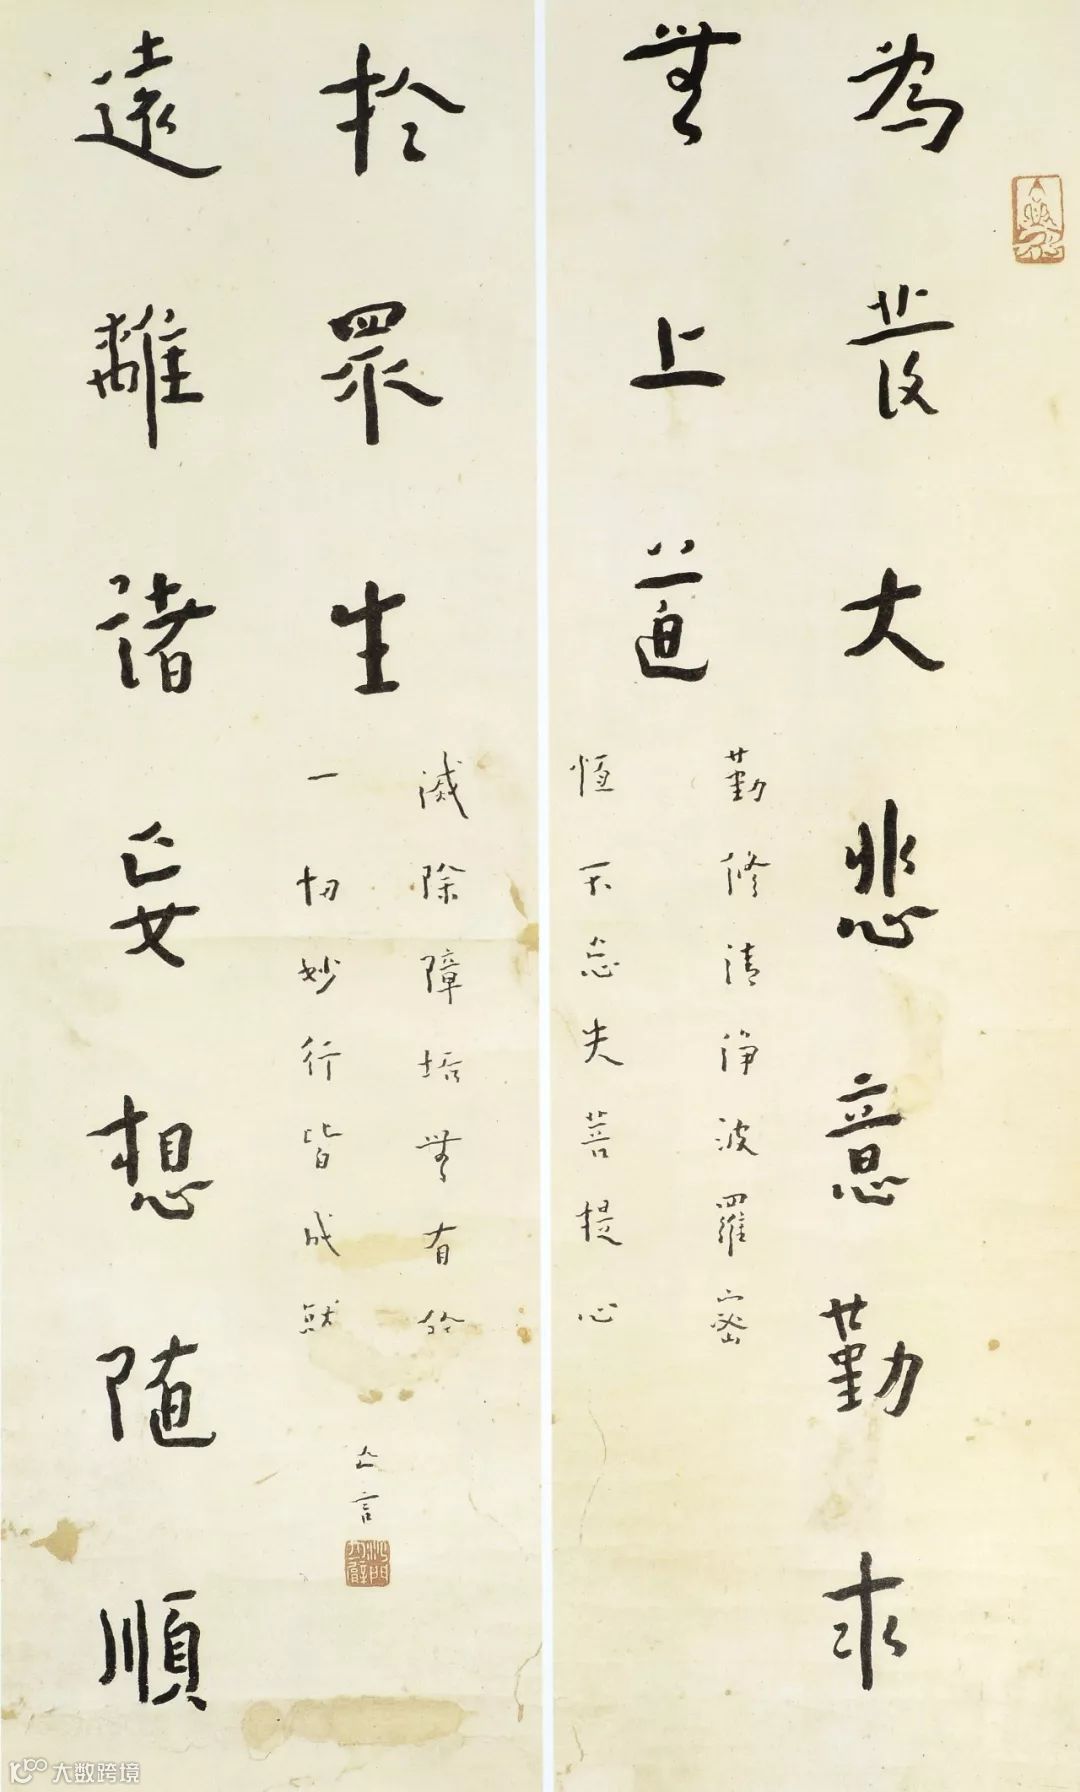 為發大悲意勤求
無上道
勤修清淨波羅密
恆不忘失菩提心
遠離諸妄想隨順
於眾生
滅除障垢無有餘
一切妙行皆成就
亡言
沙門月臂
大数跨境